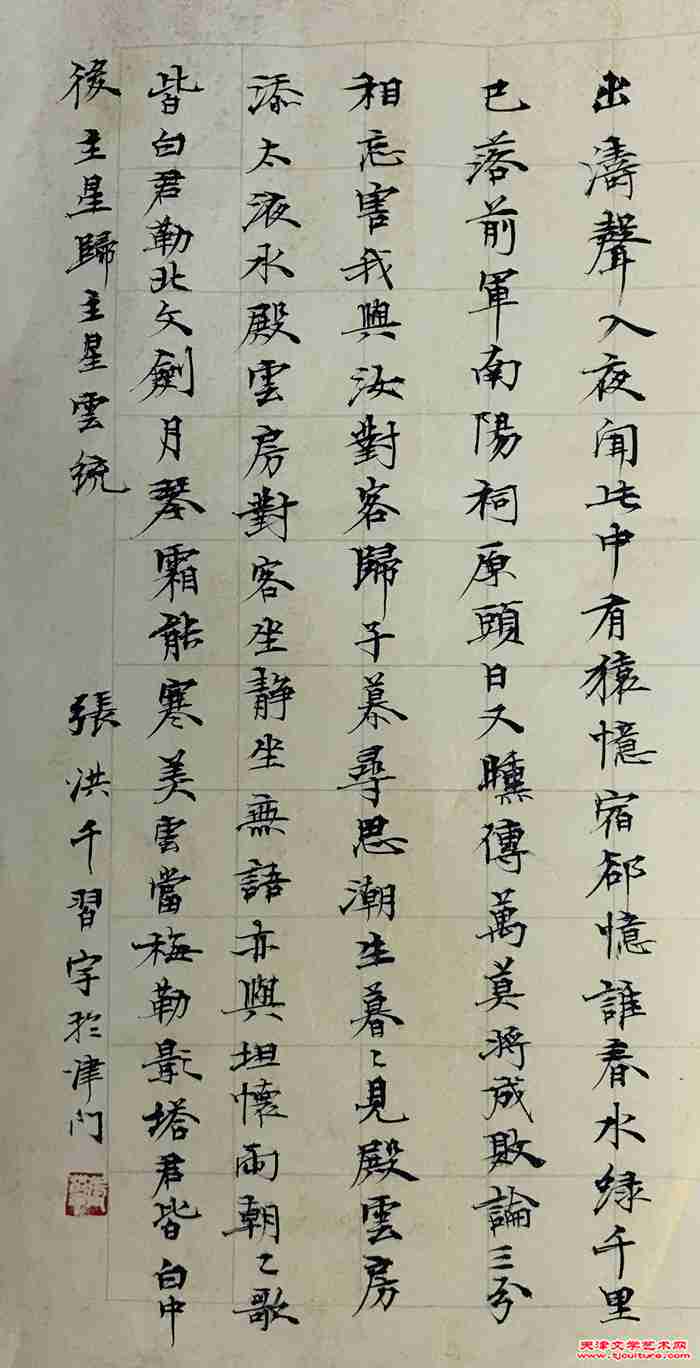 出濤聲入夜聞此中有猿憶宿郤憶誰春水绿千里
已落前軍南陽祠原頭日又曛傳萬莫將成敗論三分
相忘害我與汝對客歸子慕尋思潮生暮〻見殿雲房
添太液水殿雲房對客坐静坐無語亦與坦懷雨朝〻歌
皆白君勒北文劍月琴霜能寒美雲當梅勒影塔君皆白中
後主星歸主星雲统
張洪千習字於津门
天津文学艺术网
www.tjculture.com